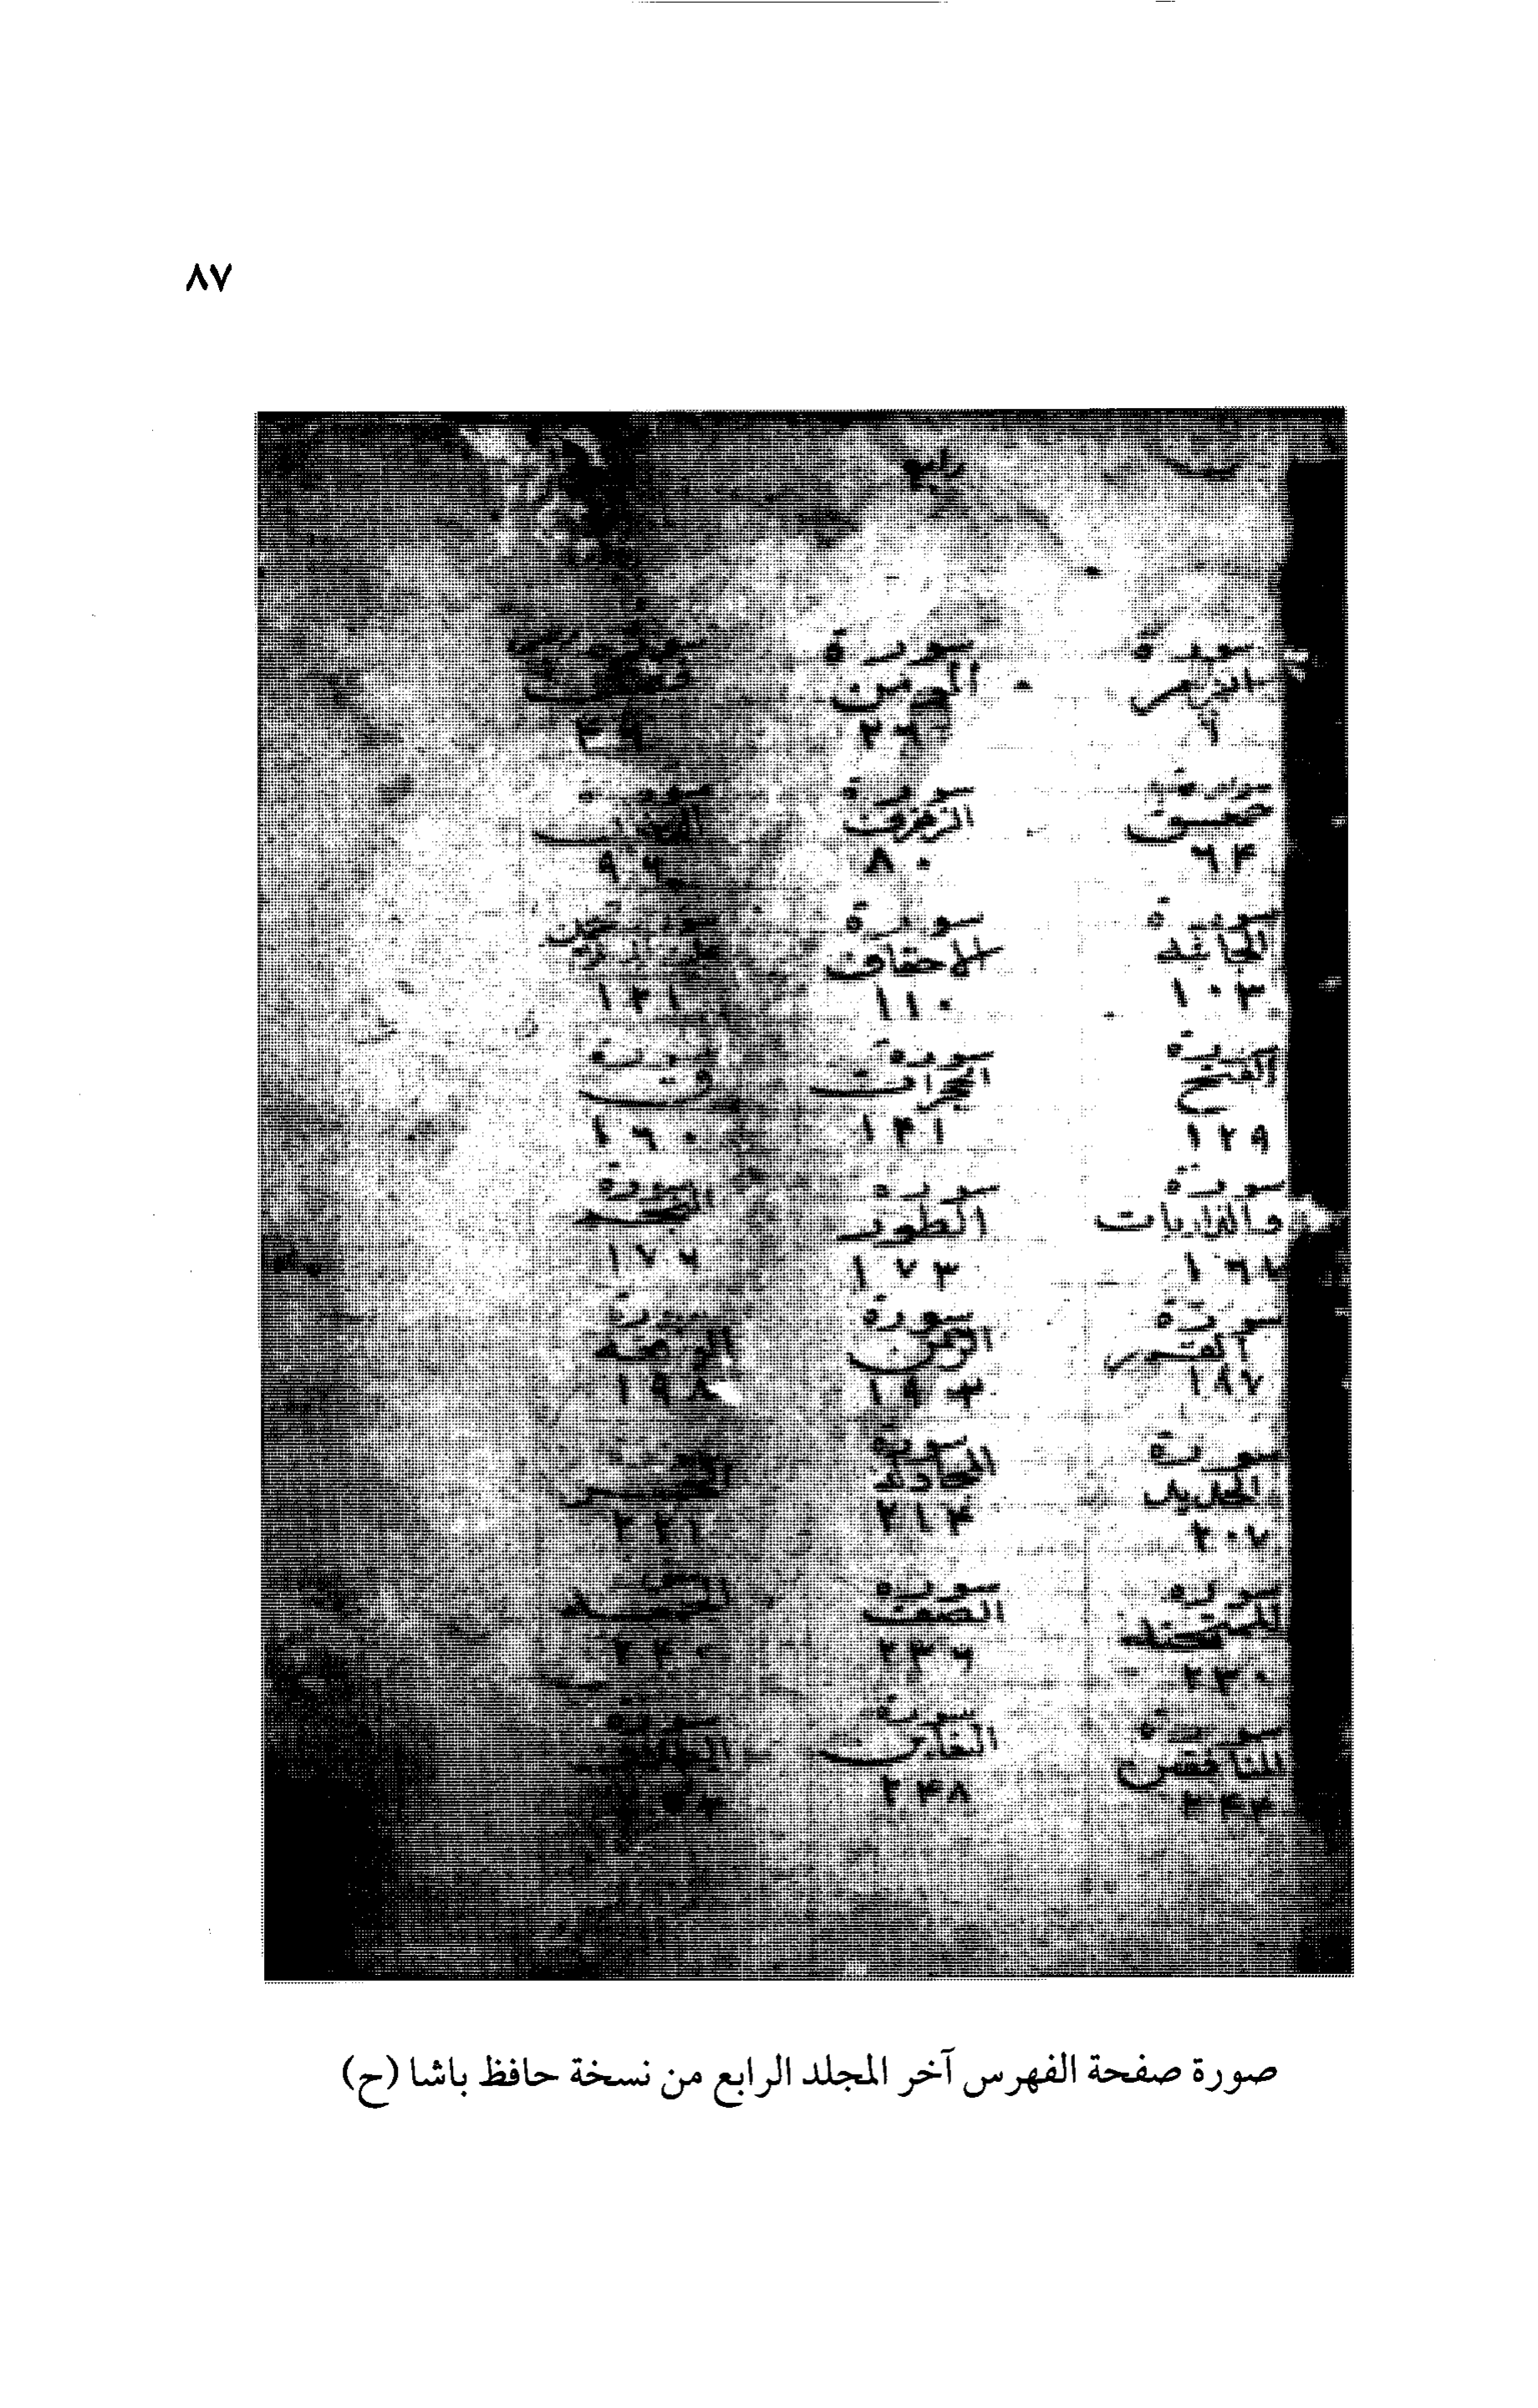 ٨٧
رابع
سورة
الزمر
سورة
المومن
٢٦
سورة
فصلت
سورة
حمعسق
٦۴
سورة
الزخرف
٨٠
سورة
الدخان
سورة
الجاثيه
١٠٣
سورة
الاحقاف
١١٠
سورة
١٢١
سورة
الفتح
١٢٩
سورة
الحجرات
١۴١
سورة
ق
١٦٠
سورة
والذاريات
١٦٧
سورة
الطور
١٧٣
سورة
النجم
سورة
القمر
١٨٧
سورة
الرحمن
١٩٣
سورة
الواقعه
١٩٨
سورة
الحديد
٢٠٧
سورة
المجادله
٢١۴
سورة
الحشر
٢٢١
سورة
الممتحنه
٢٣٠
سورة
الصف
٢٣٦
الجمعه
٢۴٠
سورة
المنافقين
٢۴٣
سورة
التغابن
٢۴٨
سورة
الطلاق
صورة صفحة الفهرس آخر المجلد الرابع من نسخة حافظ باشا (ح)